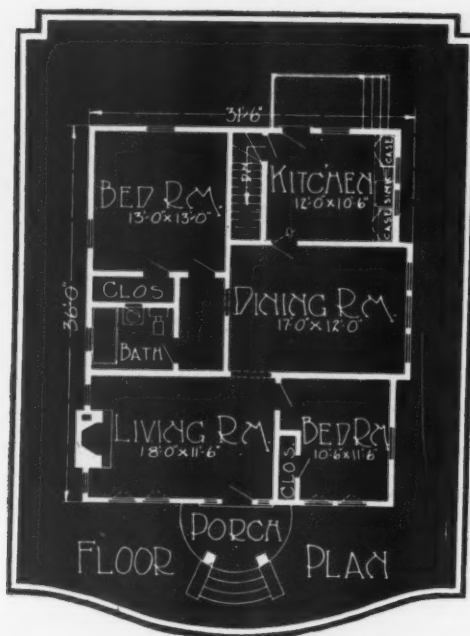 31'-6"
36'-0"
BED RM.
13'-0" x 13'-0"
DN
KITCHEN
12'-0" x 10'-6"
CASE
SINK
CASE
CLOS
BATH
DINING RM.
17'-0" x 12'-0"
LIVING RM.
18'-0" x 11'-6"
CLOS.
BED RM.
10'-6" x 11'-6"
PORCH
FLOOR PLAN